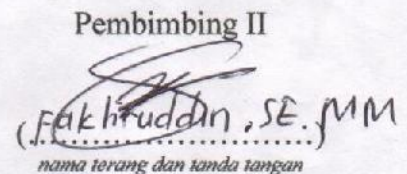 Pembimbing II
(Fakhruddin, SE. MM)
nama terang dan tanda tangan